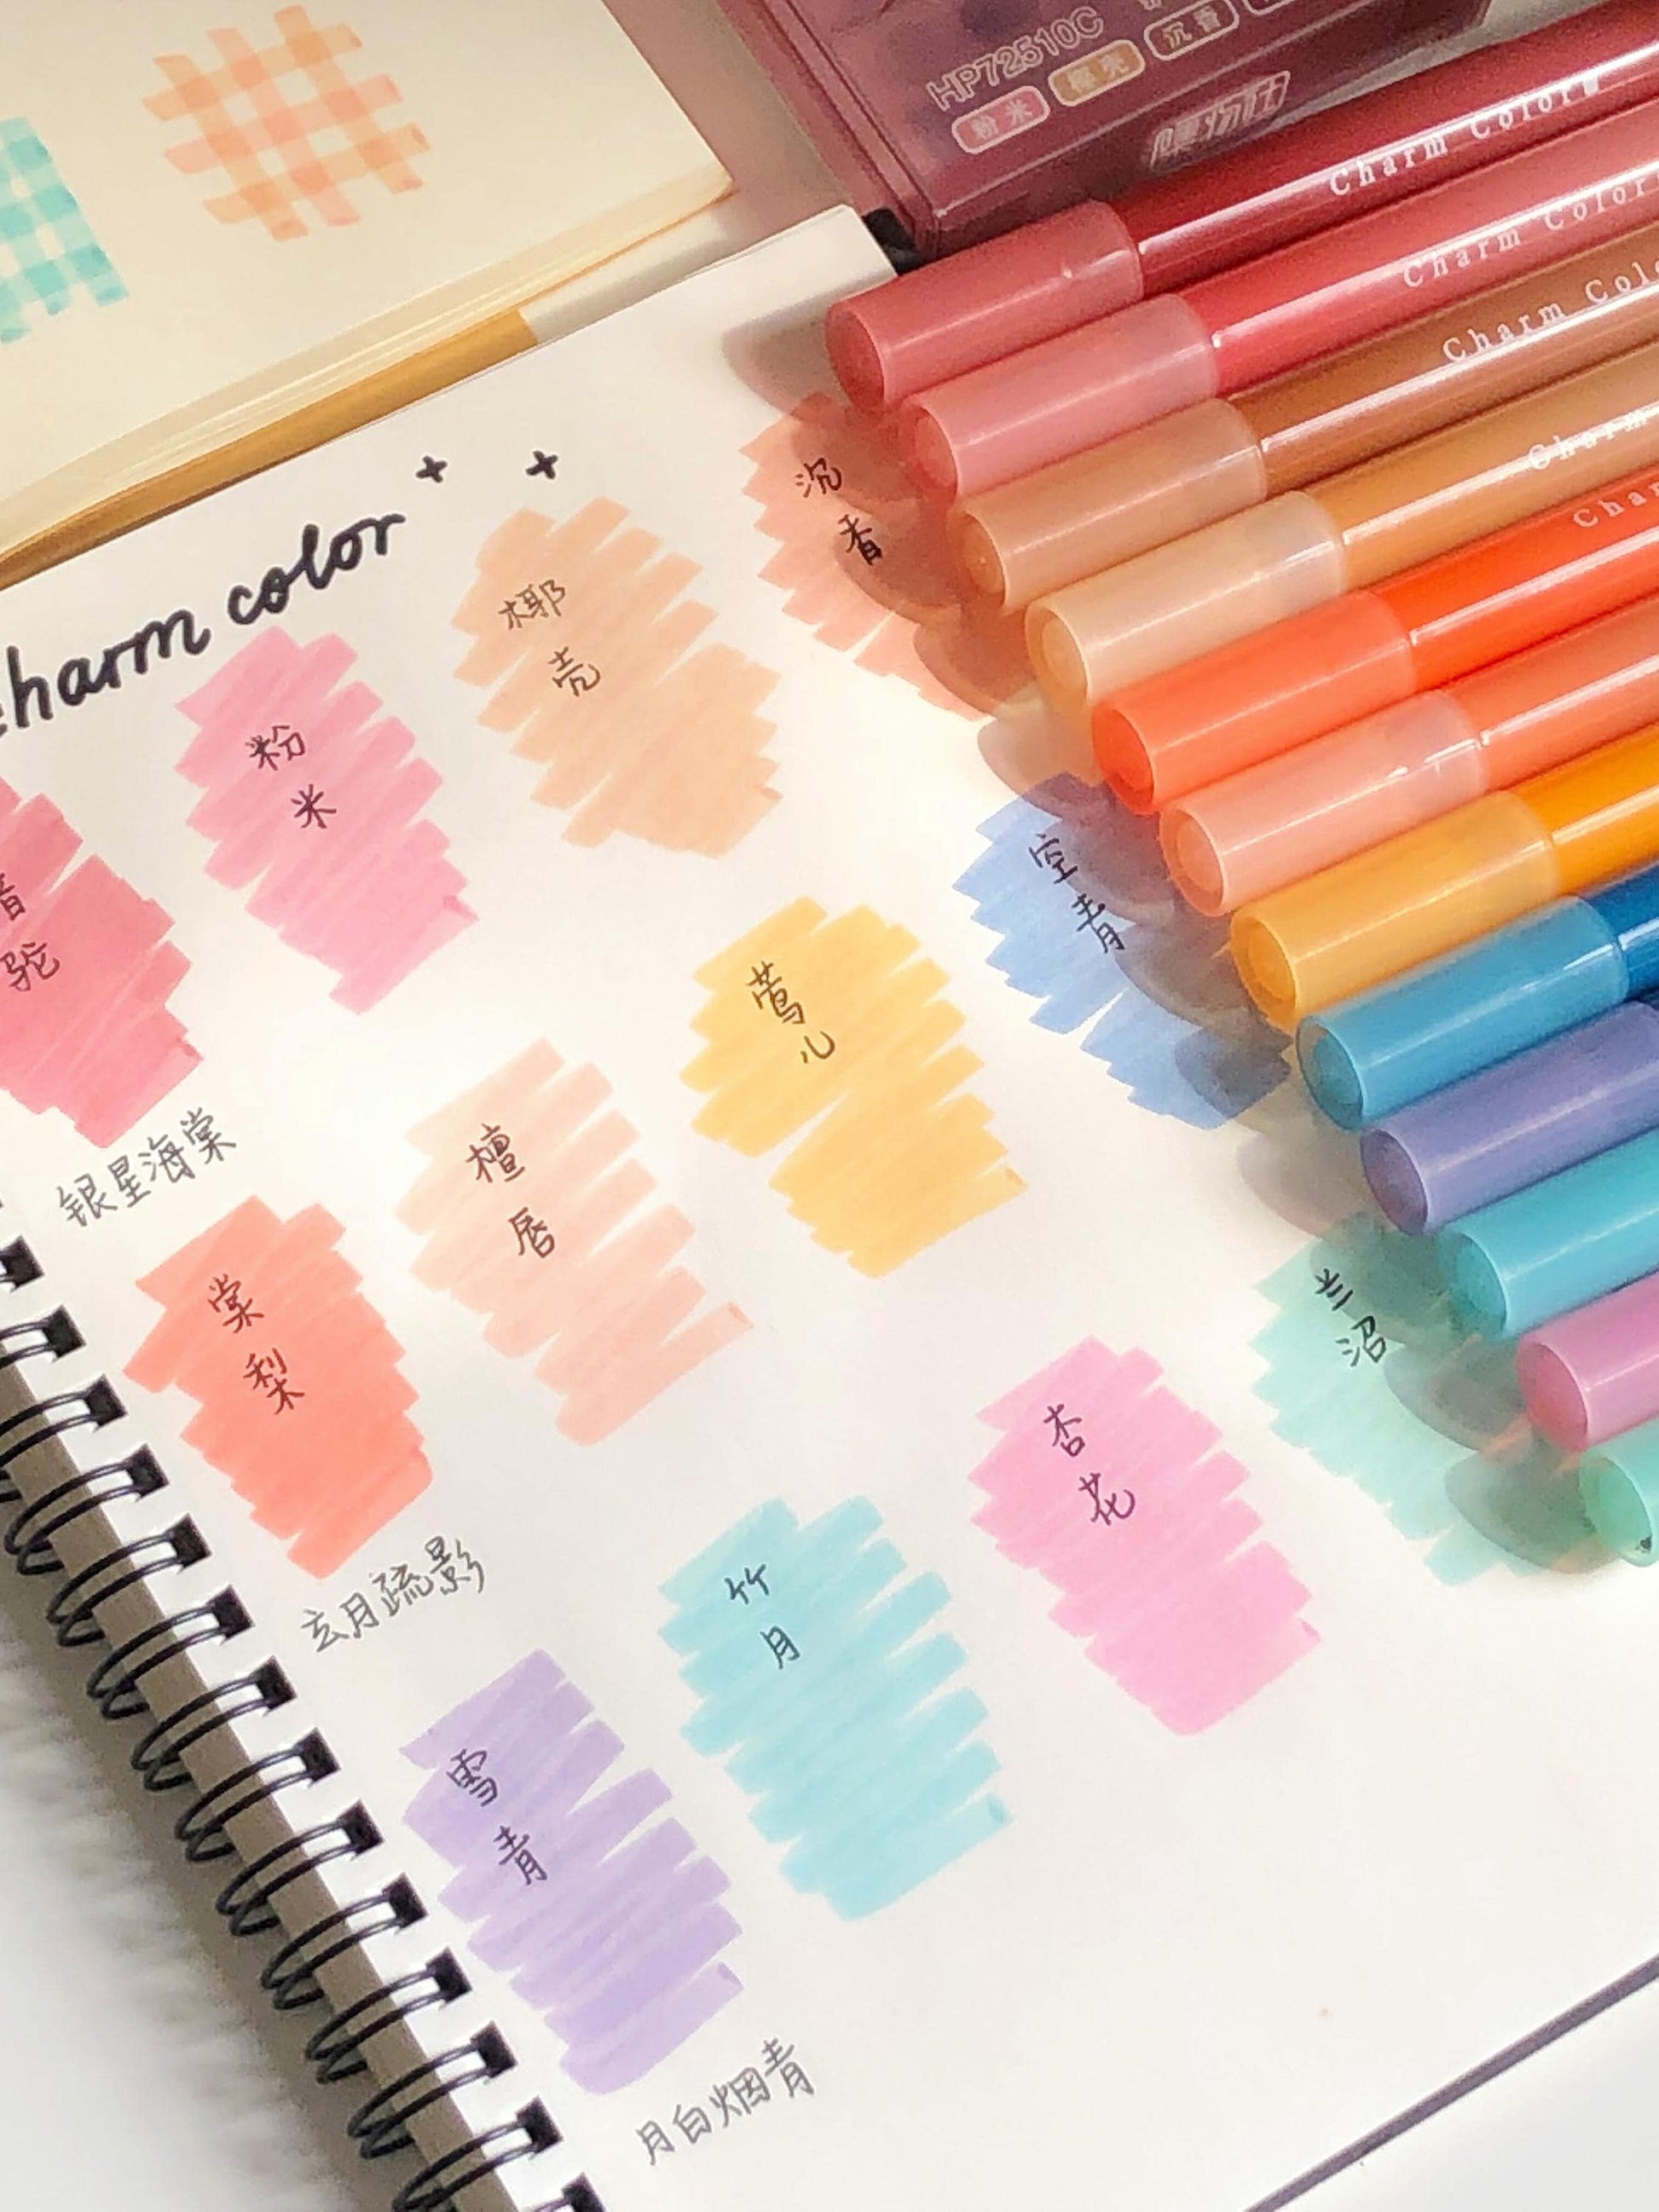 HP72510C
粉米 椰壳 沉香
Charm Color
Charm Color
Charm Colo
Charm
Char
charm color
音驼
粉米
椰壳
沉香
银星海棠
棠梨
檀唇
莺儿
空青
玄月疏影
雪青
竹月
杏花
兰沼
月白烟青